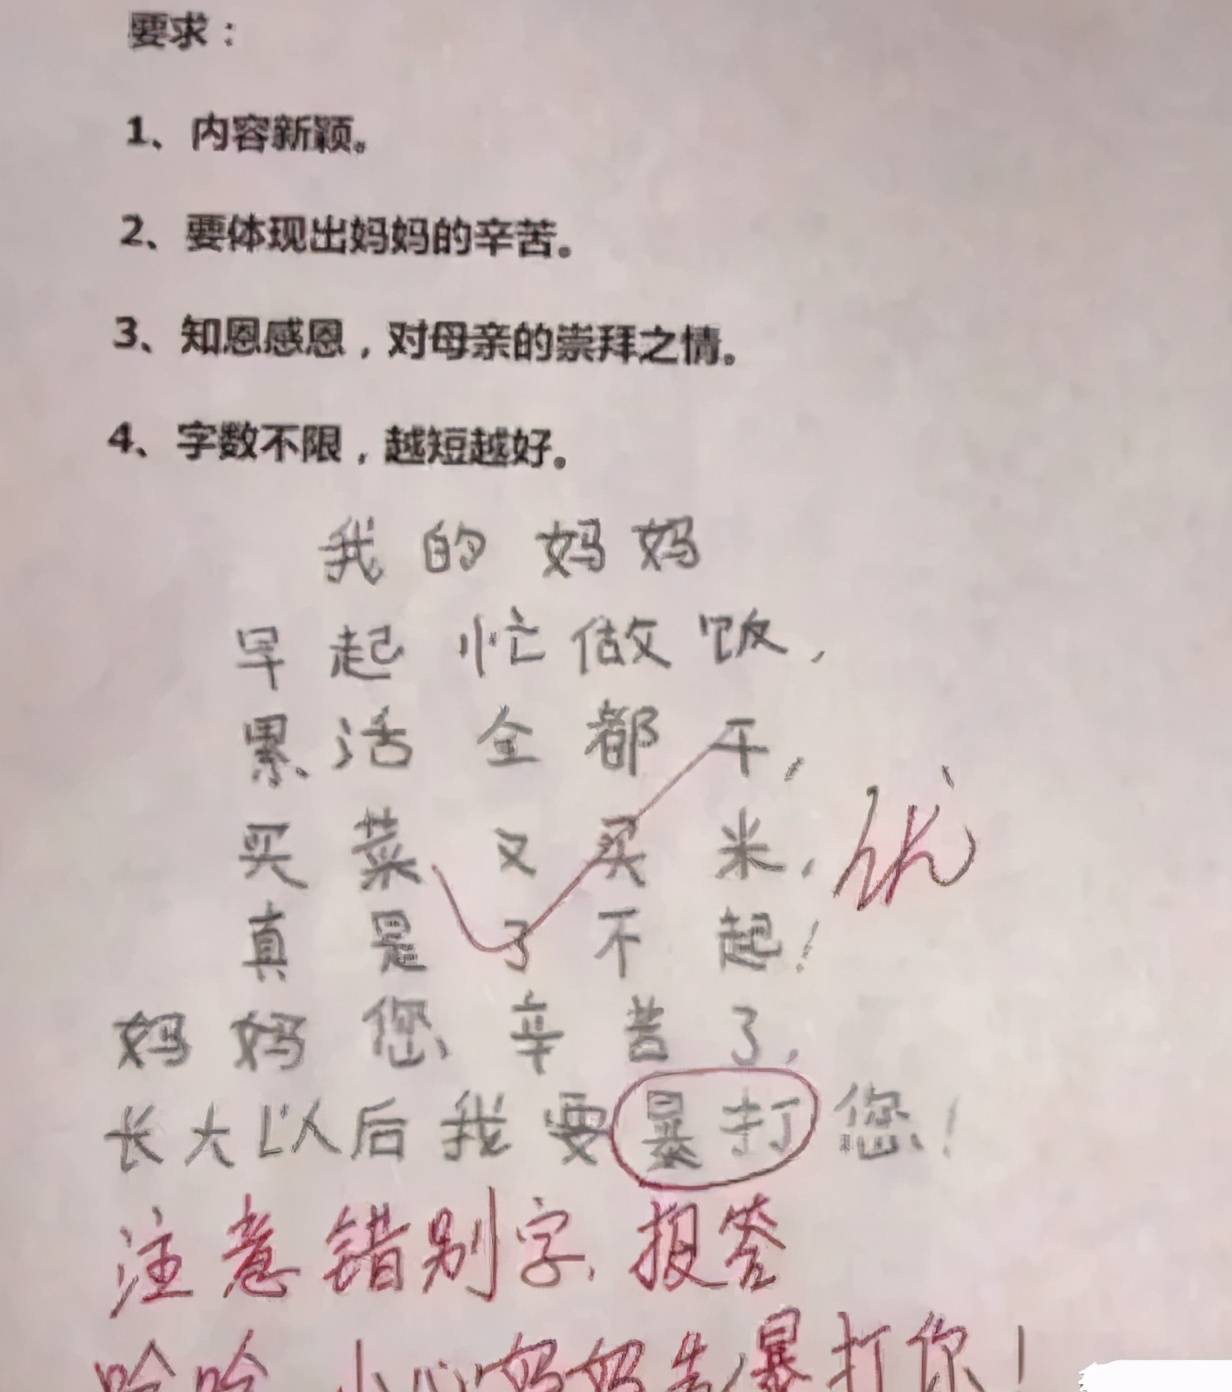 要求：
1、内容新颖。
2、要体现出妈妈的辛苦。
3、知恩感恩，对母亲的崇拜之情。
4、字数不限，越短越好。
我的妈妈
早起忙做饭，
累活全都干，
买菜又买米，
优
真是了不起！
妈妈您辛苦了，
长大以后我要暴打您！
注意错别字，报答
哈哈，小心妈妈先暴打你！